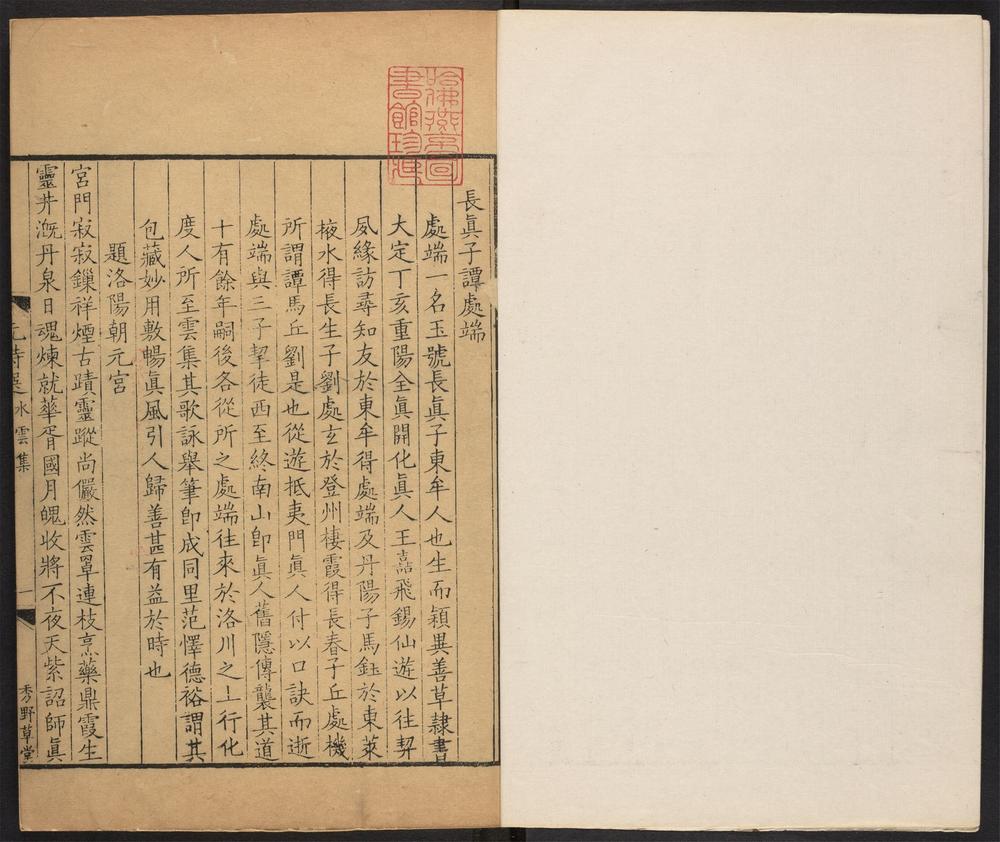 哈佛燕京圖
書館珍藏
長眞子譚處端
處端一名玉號長眞子東牟人也生而穎異善草隸書
大定丁亥重陽全眞開化眞人王嚞飛錫仙遊以往契
夙緣訪尋知友於東牟得處端及丹陽子馬鈺於東萊
掖水得長生子劉處玄於登州棲霞得長春子丘處機
所謂譚馬丘劉是也從遊抵夷門眞人付以口訣而逝
處端與三子挈徒西至終南山卽眞人舊隱傳襲其道
十有餘年嗣後各從所之處端往來於洛川之上行化
度人所至雲集其歌詠舉筆卽成同里范懌德裕謂其
包藏妙用敷暢眞風引人歸善甚有益於時也
題洛陽朝元宮
宮門寂寂鏁祥煙古蹟靈蹤尚儼然雲罩連枝烹藥鼎霞生
靈井溉丹泉日魂煉就華胥國月魄收將不夜天紫詔師眞
元詩選 水雲集
一
秀野草堂